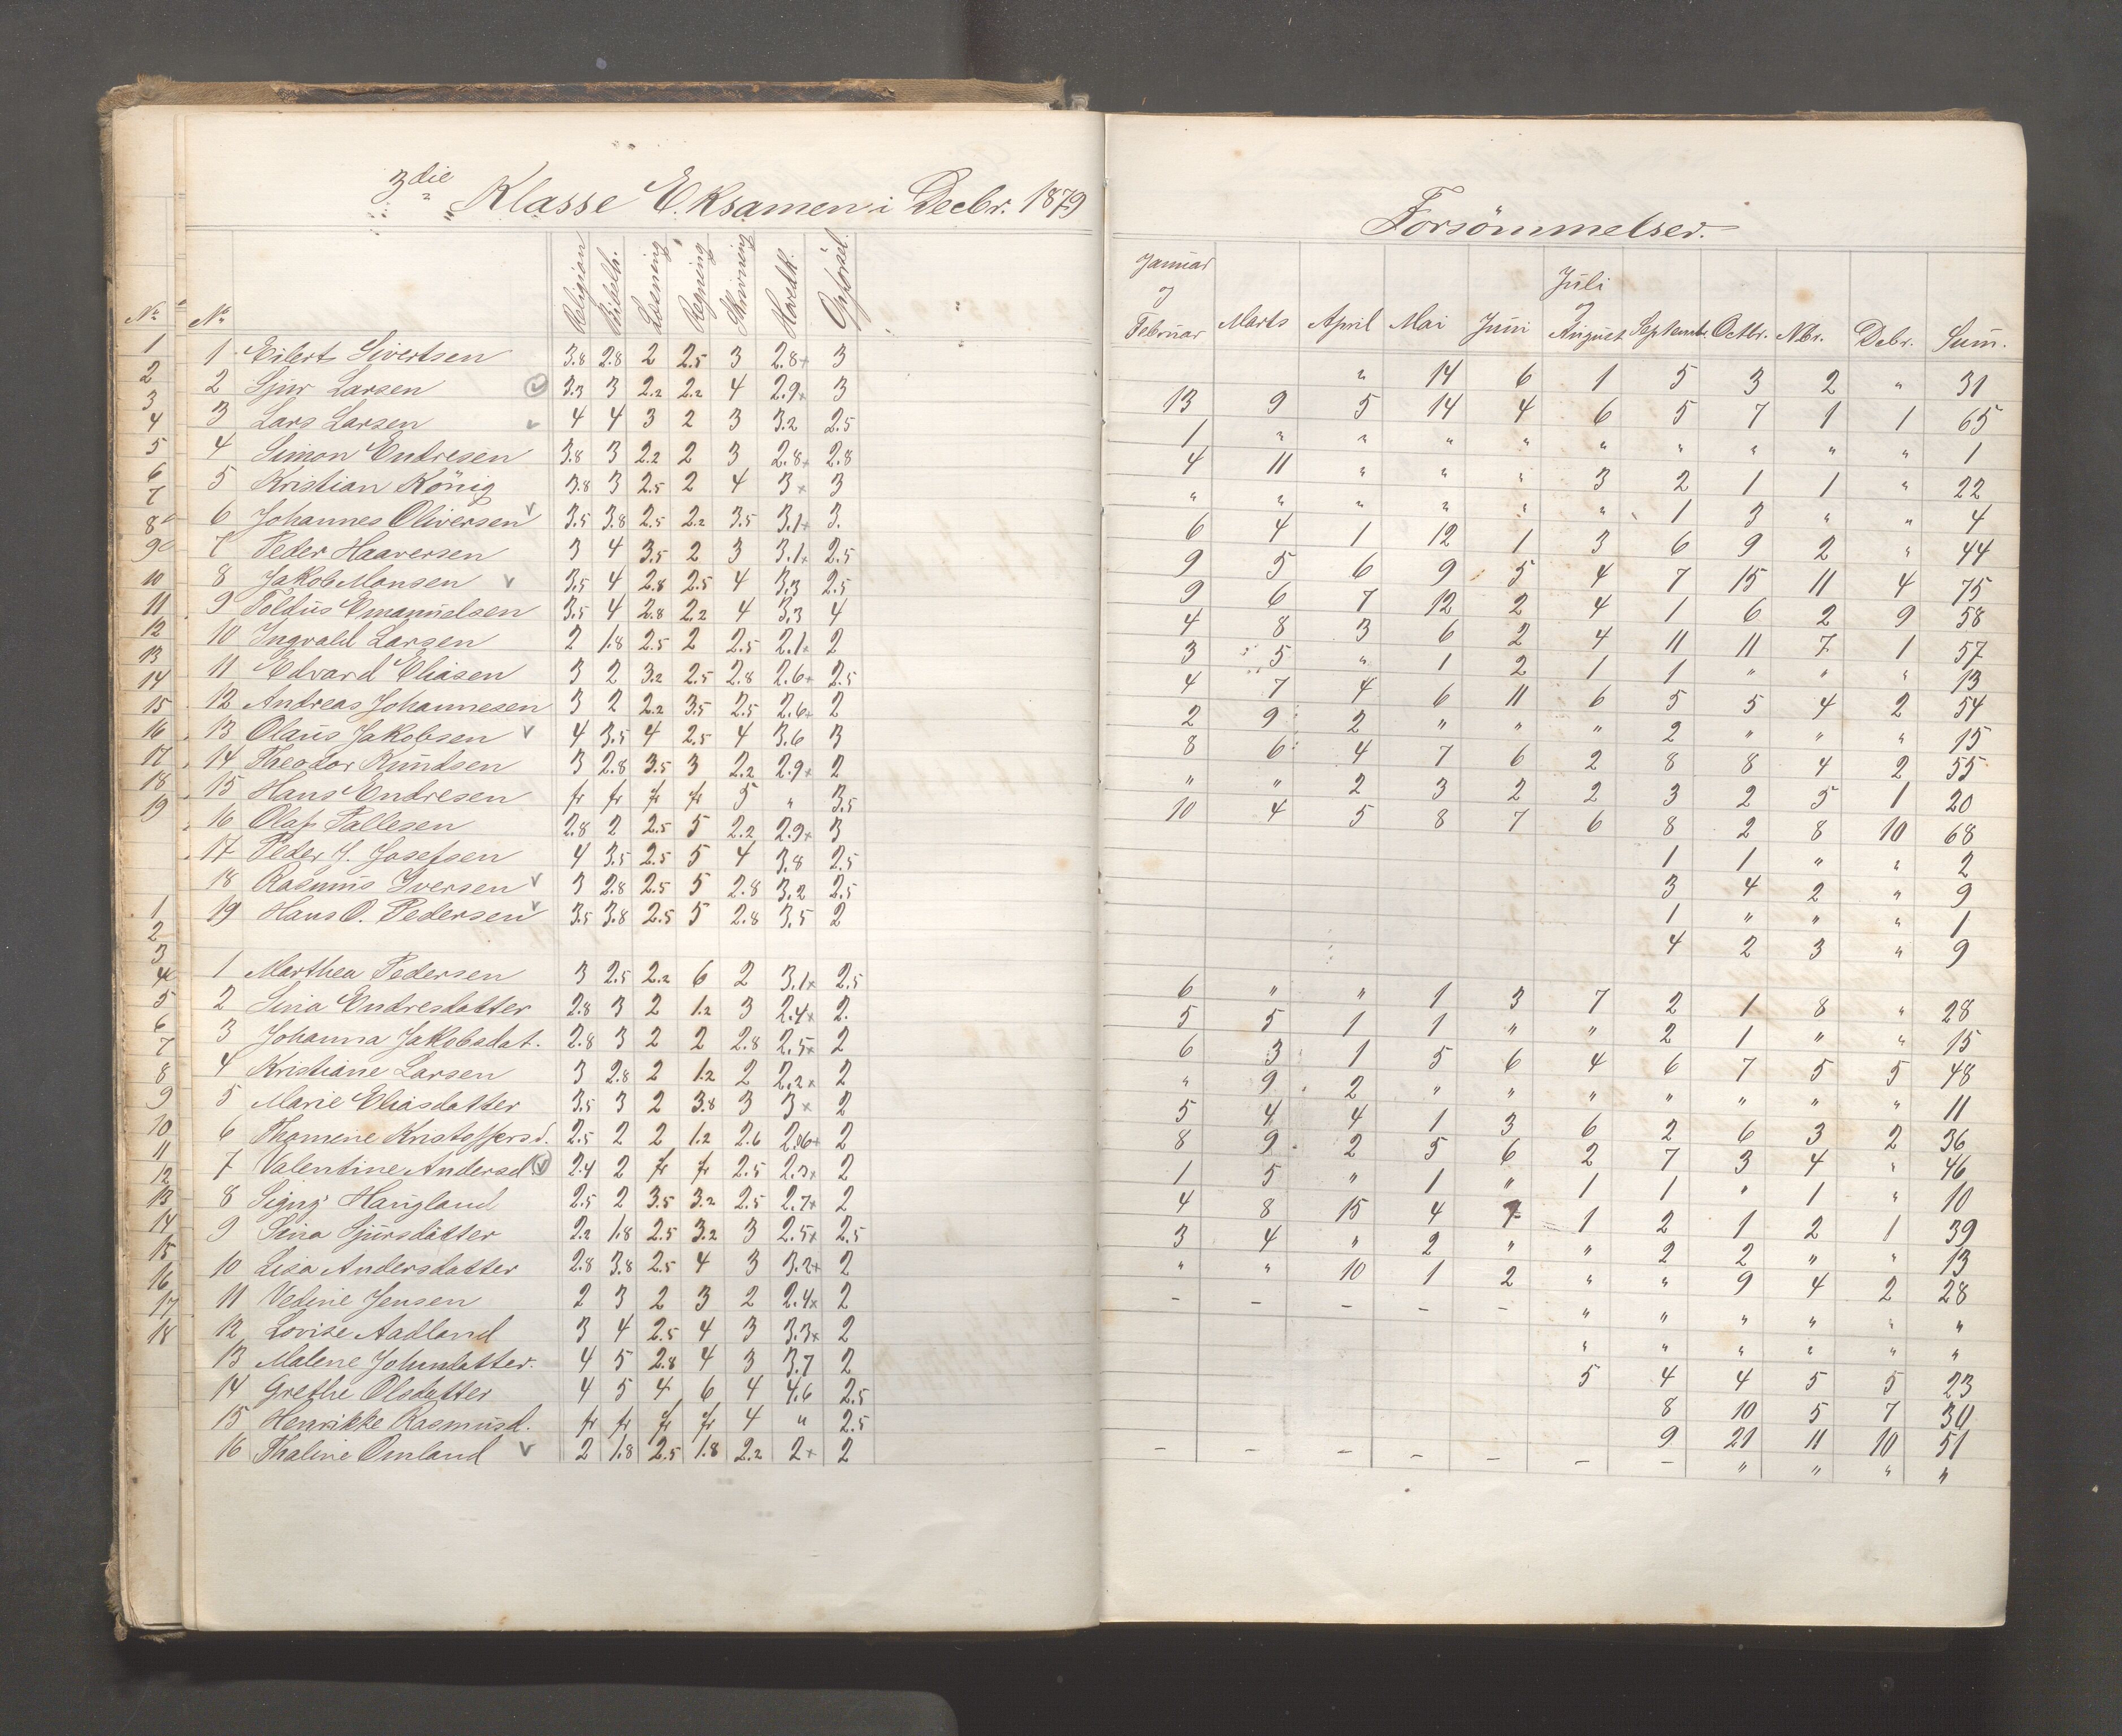 3die Klasse Eksamen i Decbr. 1879
No No Religion Bibelh. Læsning Regning Skrivning Hovedk. Opførsel.
1 Eilert Sivertsen 3.8 2.8 2 2.5 3 2.8+ 3
2 Sjur Larsen 3.3 3 2.2 2.2 4 2.9x 3
3 Lars Larsen 4 4 3 2 3 3.2 2.5
4 Simon Endresen 3.8 3 2.2 2 3 2.8+ 2.8
5 Kristian König 3.8 3 2.5 2 4 3x 3
6 Johannes Oliversen 3.5 3.8 2.5 2.2 3.5 3.1+ 3.
7 Peder Haaversen 3 4 3.5 2 3 3.1x 2.5
8 Jakob Monsen 3.5 4 2.8 2.5 4 3.3 2.5
9 Toldus Emanuelsen 3.5 4 2.8 2.2 4 3.3 4
10 Ingvald Larsen 2 1.8 2.5 2 2.5 2.1x 2
11 Edvard Eliasen 3 2 3.2 2.5 2.8 2.6+ 2.5
12 Andreas Johannesen 3 2 2.2 3.5 2.5 2.6+ 2
13 Olaus Jakobsen 4 3.5 4 2.5 4 3.6 3
14 Theodor Knudsen 3 2.8 3.5 3 2.2 2.9x 2
15 Hans Endresen fr fr fr fr 5 " 3.5
16 Olaf Tallesen 2.8 2 2.5 5 2.2 2.9x 3
17 Peder J. Josefsen 4 3.5 2.5 5 4 3.8 2.5
18 Rasmus Iversen 3 2.8 2.5 5 2.8 3.2 2.5
19 Hans O. Pedersen 3.5 3.8 2.5 5 2.8 3.5 2
1 Marthea Pedersen 3 2.5 2.2 6 2 3.1x 2.5
2 Sina Endresdatter 2.8 3 2 1.2 3 2.4x 2.
3 Johanna Jakobsdat. 2.8 3 2 2 2.8 2.5x 2
4 Kristiane Larsen 3 2.8 2 1.2 2 2.2x 2
5 Marie Eliasdatter 3.5 3 2 3.8 3 3x 2
6 Thomene Kristoffersd. 2.5 2 2 1.2 2.6 2.06+ 2
7 Valentine Andersd 2.4 2 fr fr 2.5 2.3x 2
8 Signy Haugland 2.5 2 3.5 3.2 2.5 2.7x 2
9 Sina Sjursdatter 2.2 1.8 2.5 3.2 3 2.5x 2.5
10 Lisa Andersdatter 2.8 3.8 2.5 4 3 3.2+ 2
11 Vedine Jensen 2 3 2 3 2 2.4x 2
12 Lovise Aadland 3 4 2.5 4 3 3.3x 2
13 Malene Johnsdatter. 4 5 2.8 4 3 3.7 2
14 Grethe Olsdatter 4 5 4 6 4 4.6 2.5
15 Henrikke Rasmusd. fr fr fr fr 4 " 2.5
16 Thaline Omland 2 1.8 2.5 1.8 2.2 2x 2
1
2
3
4
5
6
7
8
9
10
11
12
13
14
15
16
17
18
19
1
2
3
4
5
6
7
8
9
10
11
12
13
14
15
16
17
18
Forsömmelser.
Januar og Februar Marts April Mai Juni Juli og August Septembr. Octbr. Nbr. Debr. Sum.
" 14 6 1 5 3 2 " 31
13 9 5 14 4 6 5 7 1 1 65
1 " " " " " " " " " 1
4 11 " " " 3 2 1 1 " 22
" " " " " " 1 3 " " 4
6 4 1 12 1 3 6 9 2 " 44
9 5 6 9 5 4 7 15 11 4 75
9 6 7 12 2 4 1 6 2 9 58
4 8 3 6 2 4 11 11 7 1 57
3 5 " 1 2 1 1 " " " 13
4 7 4 6 11 6 5 5 4 2 54
2 9 2 " " " 2 " " " 15
8 6 4 7 6 2 8 8 4 2 55
" " 2 3 2 2 3 2 5 1 20
10 4 5 8 7 6 8 2 8 10 68
1 1 " " 2
3 4 2 " 9
1 " " " 1
4 2 3 " 9
6 " " 1 3 7 2 1 8 " 28
5 5 1 1 " " 2 1 " " 15
6 3 1 5 6 4 6 7 5 5 48
" 9 2 " " " " " " " 11
5 4 4 1 3 6 2 6 3 2 36
8 9 2 5 6 2 7 3 4 " 46
1 5 " 1 " 1 1 " 1 " 10
4 8 15 4 1 2 1 2 1 39
3 4 " 2 " " 2 2 " " 13
" " 10 1 2 " " 9 4 2 28
– – – – – " " " " " "
" " " " " "
5 4 4 5 5 23
8 10 5 7 30
9 21 11 10 51
– – – – – – – " " " "